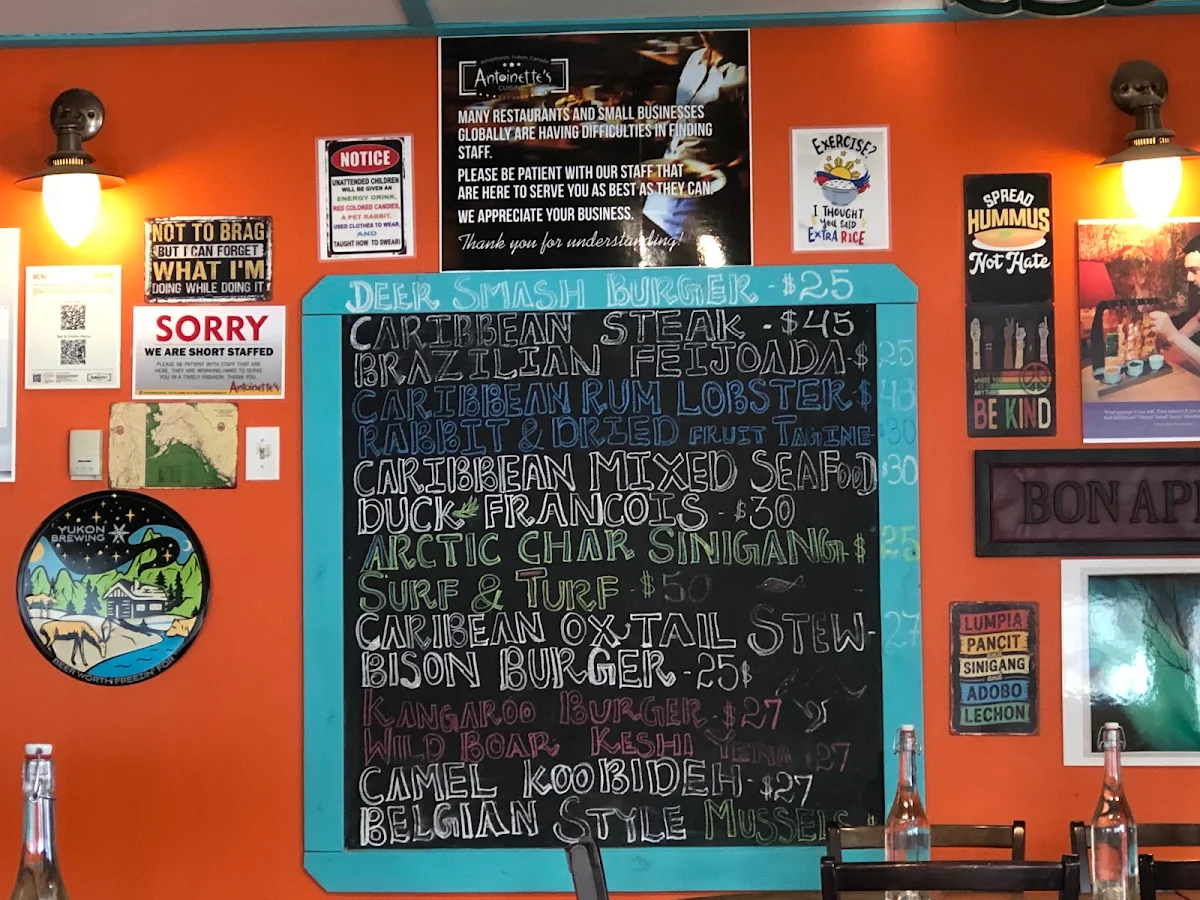 Whitehorse, Yukon, Canada
Antoinette's
CUISINE
MANY RESTAURANTS AND SMALL BUSINESSES
GLOBALLY ARE HAVING DIFFICULTIES IN FINDING
STAFF.
PLEASE BE PATIENT WITH OUR STAFF THAT
ARE HERE TO SERVE YOU AS BEST AS THEY CAN.
WE APPRECIATE YOUR BUSINESS.
Thank you for understanding!
NOTICE
UNATTENDED CHILDREN
WILL BE GIVEN AN
ENERGY DRINK,
RED COLORED CANDIES,
A PET RABBIT,
USED CLOTHES TO WEAR,
AND
TAUGHT HOW TO SWEAR!
EXERCISE?
I THOUGHT
YOU SAID
EXTRA RICE
NOT TO BRAG
BUT I CAN FORGET
WHAT I'M
DOING WHILE DOING IT
MENU
SORRY
WE ARE SHORT STAFFED
PLEASE BE PATIENT WITH STAFF THAT ARE
HERE, THEY ARE WORKING HARD TO SERVE
YOU IN A TIMELY FASHION. THANK YOU.
Antoinette's
YUKON
BREWING
BEER WORTH FREEZIN' FOR
DEER SMASH BURGER - $25
CARIBBEAN STEAK - $45
BRAZILIAN FEIJOADA - $25
CARIBBEAN RUM LOBSTER - $48
RABBIT & DRIED FRUIT TAGINE - 30
CARIBBEAN MIXED SEAFOOD $30
DUCK FRANCOIS - $30
ARCTIC CHAR SINIGANG - $25
SURF & TURF $50
CARIBEAN OXTAIL STEW - 27
BISON BURGER - 25$
KANGAROO BURGER - $27
WILD BOAR KESHI YENA $27
CAMEL KOOBIDEH - $27
BELGIAN STYLE MUSSELS
SPREAD
HUMMUS
Not Hate
BE KIND
BON APP
LUMPIA
PANCIT
and
SINIGANG
and
ADOBO
LECHON